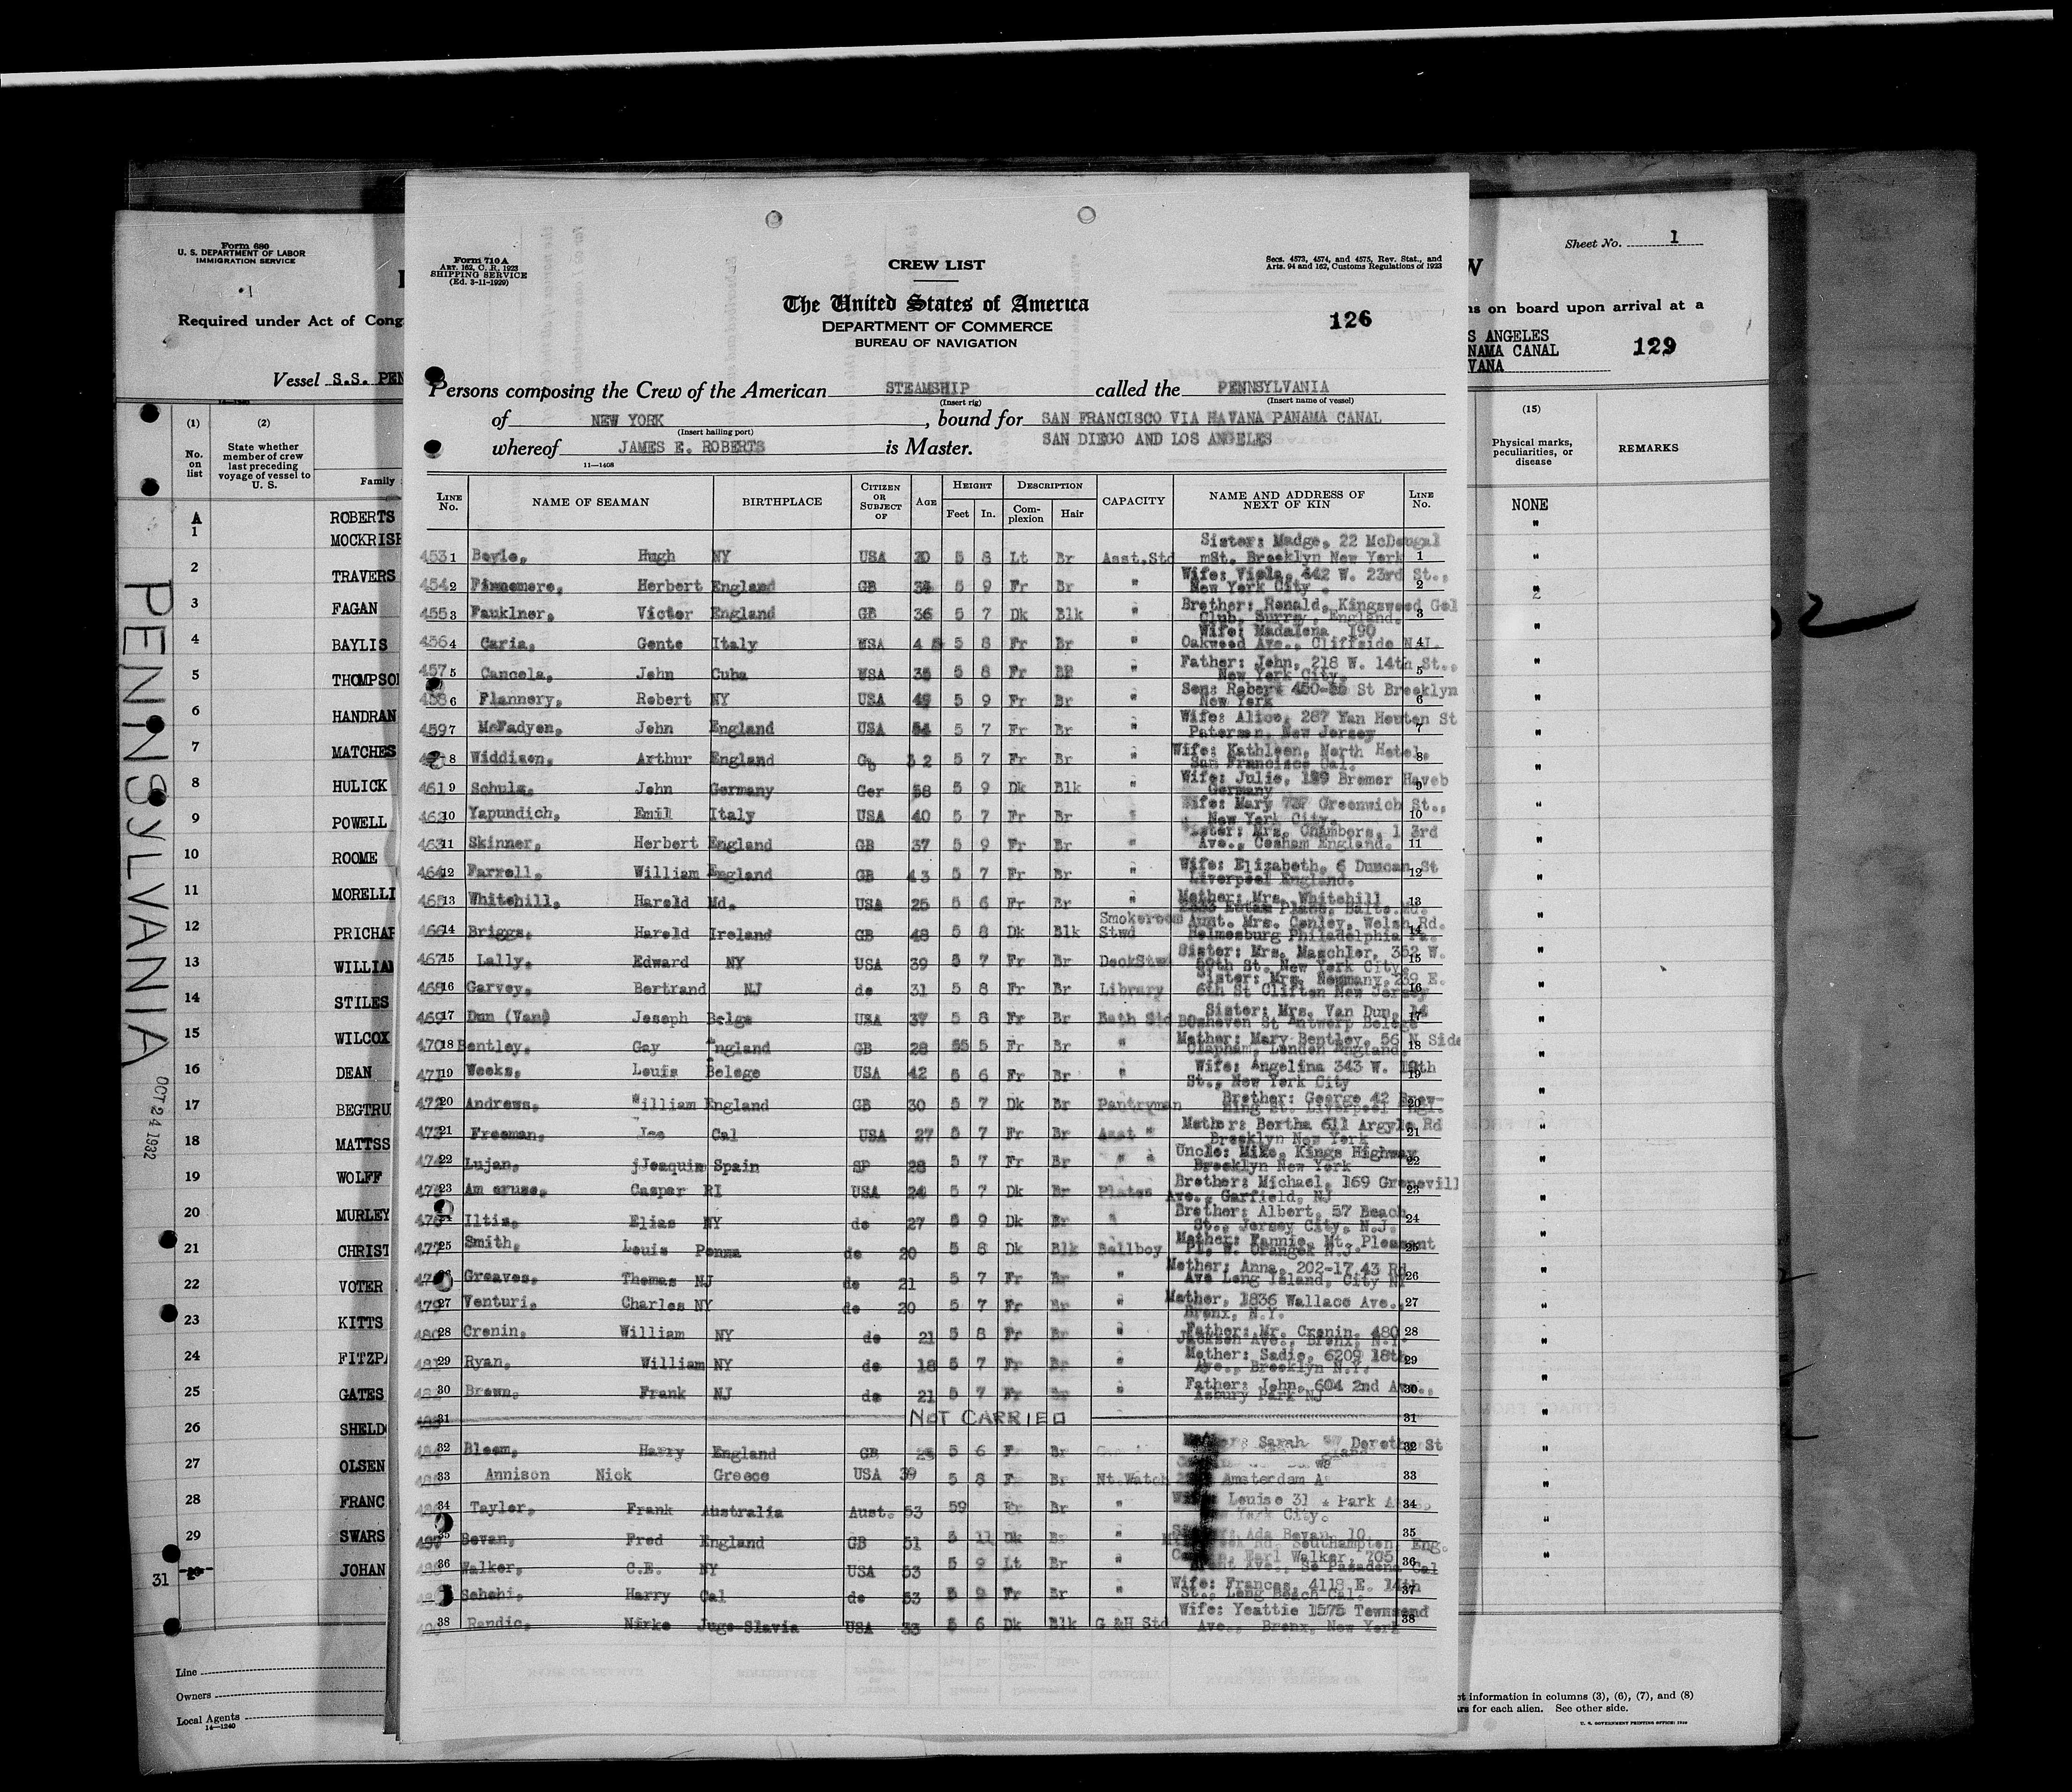 Form 680
U. S. DEPARTMENT OF LABOR
IMMIGRATION SERVICE
Required under Act of Cong
Vessel S.S. PEN
(1)
No. on list
(2)
State whether member of crew last preceding voyage of vessel to U. S.
Family
A
1 ROBERTS
MOCKRISH
2 TRAVERS
3 FAGAN
4 BAYLIS
5 THOMPSO
6 HANDRAN
7 MATCHES
8 HULICK
9 POWELL
10 ROOME
11 MORELLI
12 PRICHAR
13 WILLIAM
14 STILES
15 WILCOX
16 DEAN
17 BEGTRU
18 MATTSS
19 WOLFF
20 MURLEY
21 CHRIST
22 VOTER
23 KITTS
24 FITZPA
25 GATES
26 SHELD
27 OLSEN
28 FRANC
29 SWARS
31 JOHAN
Line
Owners
Local Agents
14—1240
PENNSYLVANIA
OCT 24 1932
Form 710 A
ART. 162, C. R. 1923
SHIPPING SERVICE
(Ed. 3-11-1929)
CREW LIST
Secs. 4573, 4574, and 4575, Rev. Stat., and
Arts. 94 and 162, Customs Regulations of 1923
The United States of America
DEPARTMENT OF COMMERCE
BUREAU OF NAVIGATION
126
Persons composing the Crew of the American STEAMSHIP called the PENNSYLVANIA
(Insert rig) (Insert name of vessel)
of NEW YORK, bound for SAN FRANCISCO VIA HAVANA PANAMA CANAL
(Insert hailing port)
SAN DIEGO AND LOS ANGELES
whereof JAMES E. ROBERTS is Master.
11—1408
LINE No. NAME OF SEAMAN BIRTHPLACE CITIZEN OR SUBJECT OF AGE HEIGHT Feet In. DESCRIPTION Complexion Hair CAPACITY NAME AND ADDRESS OF NEXT OF KIN LINE No.
453 1 Boyle, Hugh NY USA 5 8 Lt Br Asst.Std Sister: Madge, 22 McDougal
mSt. Brooklyn New York 1
454 2 Finnemore, Herbert England GB 5 9 Fr Br " Wife: Viola, 442 W. 23rd St.,
New York City. 2
455 3 Faulkner, Victor England GB 36 5 7 Dk Blk " Brother: Ronald, Kingswood Gol
Club, Surry, England. 3
456 4 Caria, Gente Italy USA 4 5 8 Fr Br " Wife: Madalena 190
Oakwood Ave., Cliffside N.J. 4
457 5 Cancela, John Cuba USA 5 8 Fr " Father: John, 218 W. 14th St.,
New York City. 5
458 6 Flannery, Robert NY USA 5 9 Fr Br " Son: Robert St Brooklyn
New York 6
459 7 McFadyen, John England USA 54 5 7 Fr Br " Wife: Alice, 287 Van Houten St
Paterson, New Jersey 7
8 Widdison, Arthur England Gb 32 5 7 Fr Br " Wife: Kathleen, North Hotel,
San Francisco Cal. 8
461 9 Schulz, John Germany Ger 58 5 9 Dk Blk " Wife: Julie, Bremer Haveb
Germany 9
462 10 Yapundich, Emil Italy USA 40 5 7 Fr Br " Wife: Mary Greenwich St.,
New York City. 10
463 11 Skinner, Herbert England GB 37 5 9 Fr Br " Mrs. Chambers, 1 3rd
Ave., Cosham England. 11
464 12 Farrell, William England GB 43 5 7 Fr Br " Wife: Elizabeth, 6 Duncan St
Liverpool England. 12
465 13 Whitehill, Harold Md. USA 25 5 6 Fr Br " Mother: Mrs. Whitehill
Eutaw Place, Balto.Md. 13
466 14 Briggs, Harold Ireland GB 48 5 8 Dk Blk Smokeroom Stwd Aunt. Mrs. Conley, Welsh Rd.
Holmesburg Philadelphia Pa. 14
467 15 Lally, Edward NY USA 39 5 7 Fr Br DeckStwd Sister: Mrs. Maschler, 352 W.
59th St. New York City, 15
468 16 Garvey, Bertrand NJ do 31 5 8 Fr Br Library Sister: Mrs. Newmany, 239 E.
6th St Clifton New Jersey 16
469 17 Dun (Van) Joseph Belge USA 37 5 8 Fr Br Bath Std Sister: Mrs. Van Dun, 14
St Antwerp Belege 17
470 18 Bentley, Gay England GB 28 55 5 Fr Br " Mother: Mary Bentley, 56 N Side
Clapham, London England. 18
471 19 Weeks, Louis Belege USA 42 5 6 Fr Br " Wife: Angelina 343 W. 19th
St., New York City 19
472 20 Andrews, William England GB 30 5 7 Dk Br Pantryman Brother: George 42
St. Liverpool Engl. 20
473 21 Freeman, Joe Cal USA 27 5 7 Fr Br Asst " Mother: Bertha 611 Argyle Rd
Brooklyn New York 21
474 22 Lujan, jJoaquin Spain SP 28 5 7 Fr Br " " Uncle: Mike, Kings Highway
Brooklyn New York 22
475 23 Am oruso, Casper RI USA 24 5 7 Dk Br Plates Brother: Michael, 169 Grenevill
Ave., Garfield, NJ 23
476 Iltis, Elias NY do 27 5 9 Dk Br " Brother: Albert, 57 Beach
St., Jersey City, N.J. 24
477 25 Smith, Louis Penna do 20 5 8 Dk Blk Bellboy Mother: Fannie, Mt. Pleasant
Pl, W. Orange N.J. 25
Greaves, Thomas NJ do 21 5 7 Fr Br " Mother: Anna, 202-17 43 Rd
Ave Long Island, City NY 26
479 27 Venturi, Charles NY do 20 5 7 Fr Br " Mother, 1836 Wallace Ave.,
Bronx, N.Y. 27
480 28 Cronin, William NY do 21 5 8 Fr Br " Father: Mr. Cronin, 480
Jackson Ave., Bronx, N.Y. 28
481 29 Ryan, William NY do 18 5 7 Fr Br " Mother: Sadie, 6209 18th
Ave., Brooklyn N.Y. 29
482 30 Brown, Frank NJ do 21 5 7 Fr Br " Father: John, 604 2nd Ave.,
Asbury Park NJ 30
31 NOT CARRIED 31
32 Bloom, Harry England GB 5 6 Br Sarah St 32
33 Annison Nick Greece USA 39 5 8 F Br Nt.Watch Amsterdam A 33
34 Taylor, Frank Australia Aust. 53 59 Br " Louise 31 Park
York City. 34
35 Bevan, Fred England GB 51 5 11 Dk Br " Ada Bevan, 10,
Rd. Southampton, Eng. 35
36 Walker, C.E. NY USA 53 5 9 Lt Br " Earl Walker, 705
Ave., So Pasadena Cal 36
Schehi, Harry Cal do 53 5 9 Fr Br " Wife: Frances, 4118 E. 14th
St., Long Beach Cal. 37
38 Randic, Nirko Jugo-Slavia USA 33 5 6 Dk Blk G &H Std Wife: Yeattie 1575 Townsend
Ave., Bronx, New York 38
Sheet No. 1
W
ns on board upon arrival at a
S ANGELES
NAMA CANAL
VANA
129
(15)
Physical marks, peculiarities, or disease
REMARKS
NONE
t information in columns (3), (6), (7), and (8)
rs for each alien. See other side.
U. S. GOVERNMENT PRINTING OFFICE: 1930